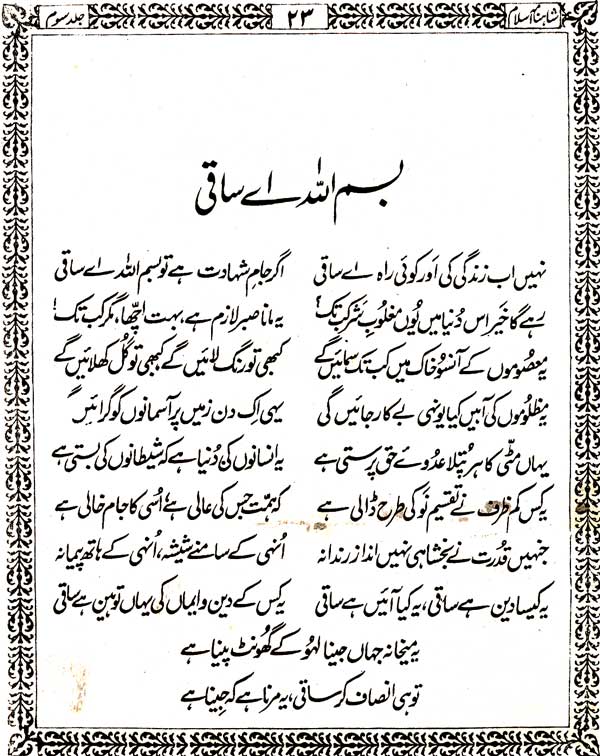 شاہنامۂ اسلام ۲۳ جلد سوم
بسم اللہ اے ساقی
نہیں اب زندگی کی اَور کوئی راہ اے ساقی اگر جامِ شہادت ہے تو بسم اللہ اے ساقی
رہے گا خَیر اس دُنیا میں یُوں مغلُوبِ شَر کب تک؟ یہ مانا صبر لازم ہے، بہت اچھّا، مگر کب تک!
یہ معصُوموں کے آنسُو خاک میں کب تک سمائیں گے کبھی تو رنگ لائیں گے کبھی تو گُل کھلائیں گے
یہ مظلُوموں کی آہیں کیا یونہی بے کار جائیں گی یہی اِک دن زمیں پر آسمانوں کو گرائیں گی
یہاں مٹّی کا ہر پُتلا عدُوئے حق پرستی ہے یہ انسانوں کی دُنیا ہے کہ شیطانوں کی بستی ہے
یہ کِس کم ظرف نے تقسیمِ نَو کی طرح ڈالی ہے کہ ہمّت جس کی عالی ہے اُسی کا جام خالی ہے
جنہیں قُدرت نے بخشا ہی نہیں اندازِ رندانہ اُنہی کے سامنے شیشہ، اُنہی کے ہاتھ پیمانہ
یہ کیسا دین ہے ساقی، یہ کیا آئیں ہے ساقی یہ کس کے دین و ایماں کی یہاں توہین ہے ساقی
یہ میخانہ جہاں جینا لہُو کے گھُونٹ پینا ہے
تو ہی انصاف کر ساقی، یہ مرنا ہے کہ جِینا ہے